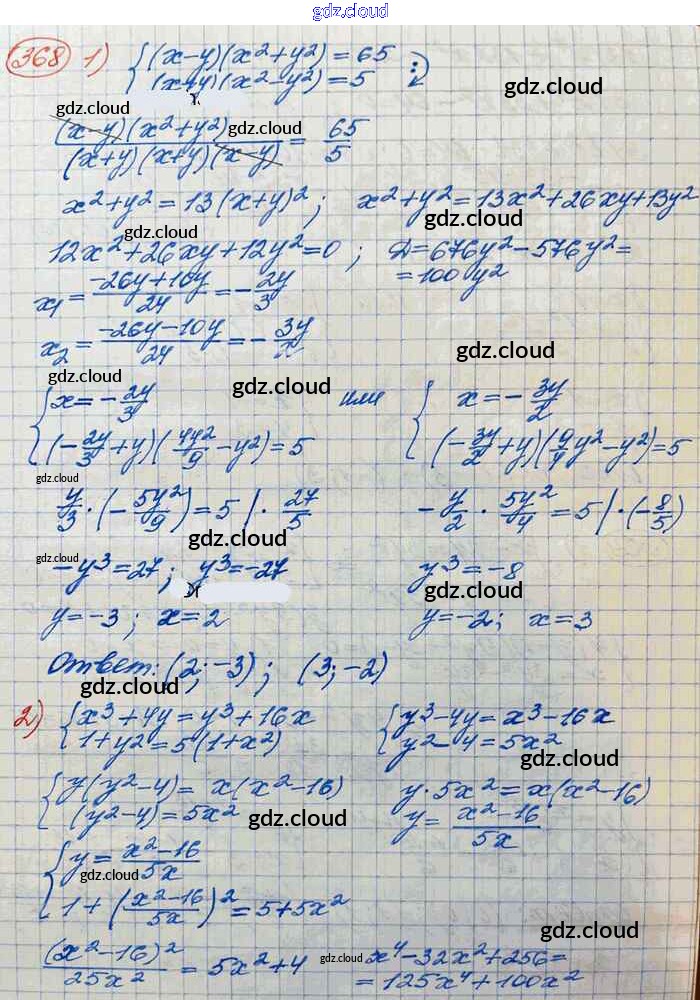 gdz.cloud
368 1) {(x-y)(x²+y²)=65
(x+y)(x²-y²)=5 :
gdz.cloud
gdz.cloud
(x-y)(x²+y²) / (x+y)(x+y)(x-y) = 65/5
gdz.cloud
x²+y²=13(x+y)²; x²+y²=13x²+26xy+13y²
gdz.cloud gdz.cloud
12x²+26xy+12y²=0; D=676y²-576y²=
=100y²
gdz.cloud
x₁= (-26y+10y)/24 = -2y/3
x₂= (-26y-10y)/24 = -3y/x
gdz.cloud
gdz.cloud gdz.cloud
{x=-2y/3 или {x=-3y/2
(-2y/3+y)(4y²/9-y²)=5 (-3y/2+y)(9/4y²-y²)=5
gdz.cloud
y/3·(-5y²/9)=5 |·27/5 -y/2·5y²/4=5 |·(-8/5)
gdz.cloud
gdz.cloud
-y³=27; y³=-27 y³=-8
gdz.cloud
y=-3; x=2 y=-2; x=3
Ответ: (2;-3); (3;-2)
gdz.cloud gdz.cloud
2) {x³+4y=y³+16x {y³-4y=x³-16x
1+y²=5(1+x²) y²-4=5x²
gdz.cloud
{y(y²-4)=x(x²-16) y·5x²=x(x²-16)
(y²-4)=5x² y= (x²-16)/5x
gdz.cloud
gdz.cloud
{y= (x²-16)/5x
gdz.cloud
1+((x²-16)/5x)²=5+5x²
gdz.cloud
(x²-16)²/25x² = 5x²+4 gdz.cloud x⁴-32x²+256=
=125x⁴+100x²